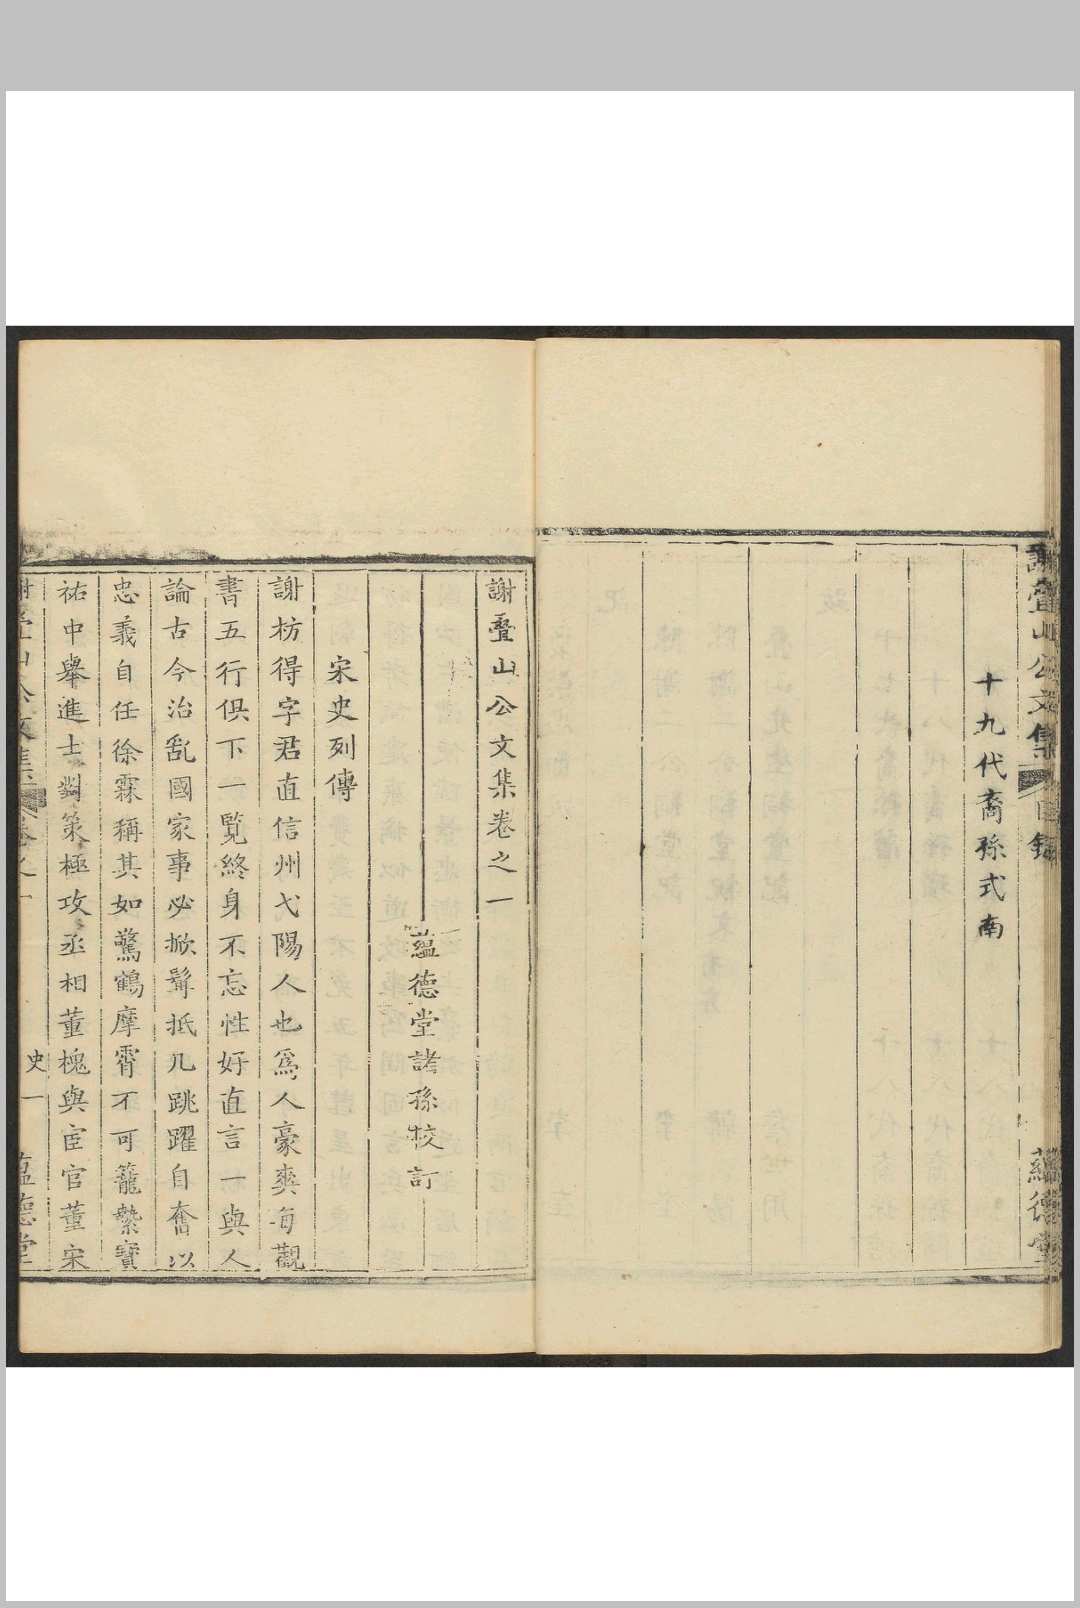 謝疊山公文集 目錄 蘊德堂
十九代裔孫式南
謝疊山公文集卷之一
蘊德堂諸孫校訂
宋史列傳
謝枋得字君直信州弋陽人也為人豪爽每觀
書五行俱下一覽終身不忘性好直言一與人
論古今治亂國家事必掀髯抵几跳躍自奮以
忠義自任徐霖稱其如驚鶴摩霄不可籠縶寶
祐中舉進士對策極攻丞相董槐與宦官董宋
謝疊山公文集 卷之一 史 一 蘊德堂